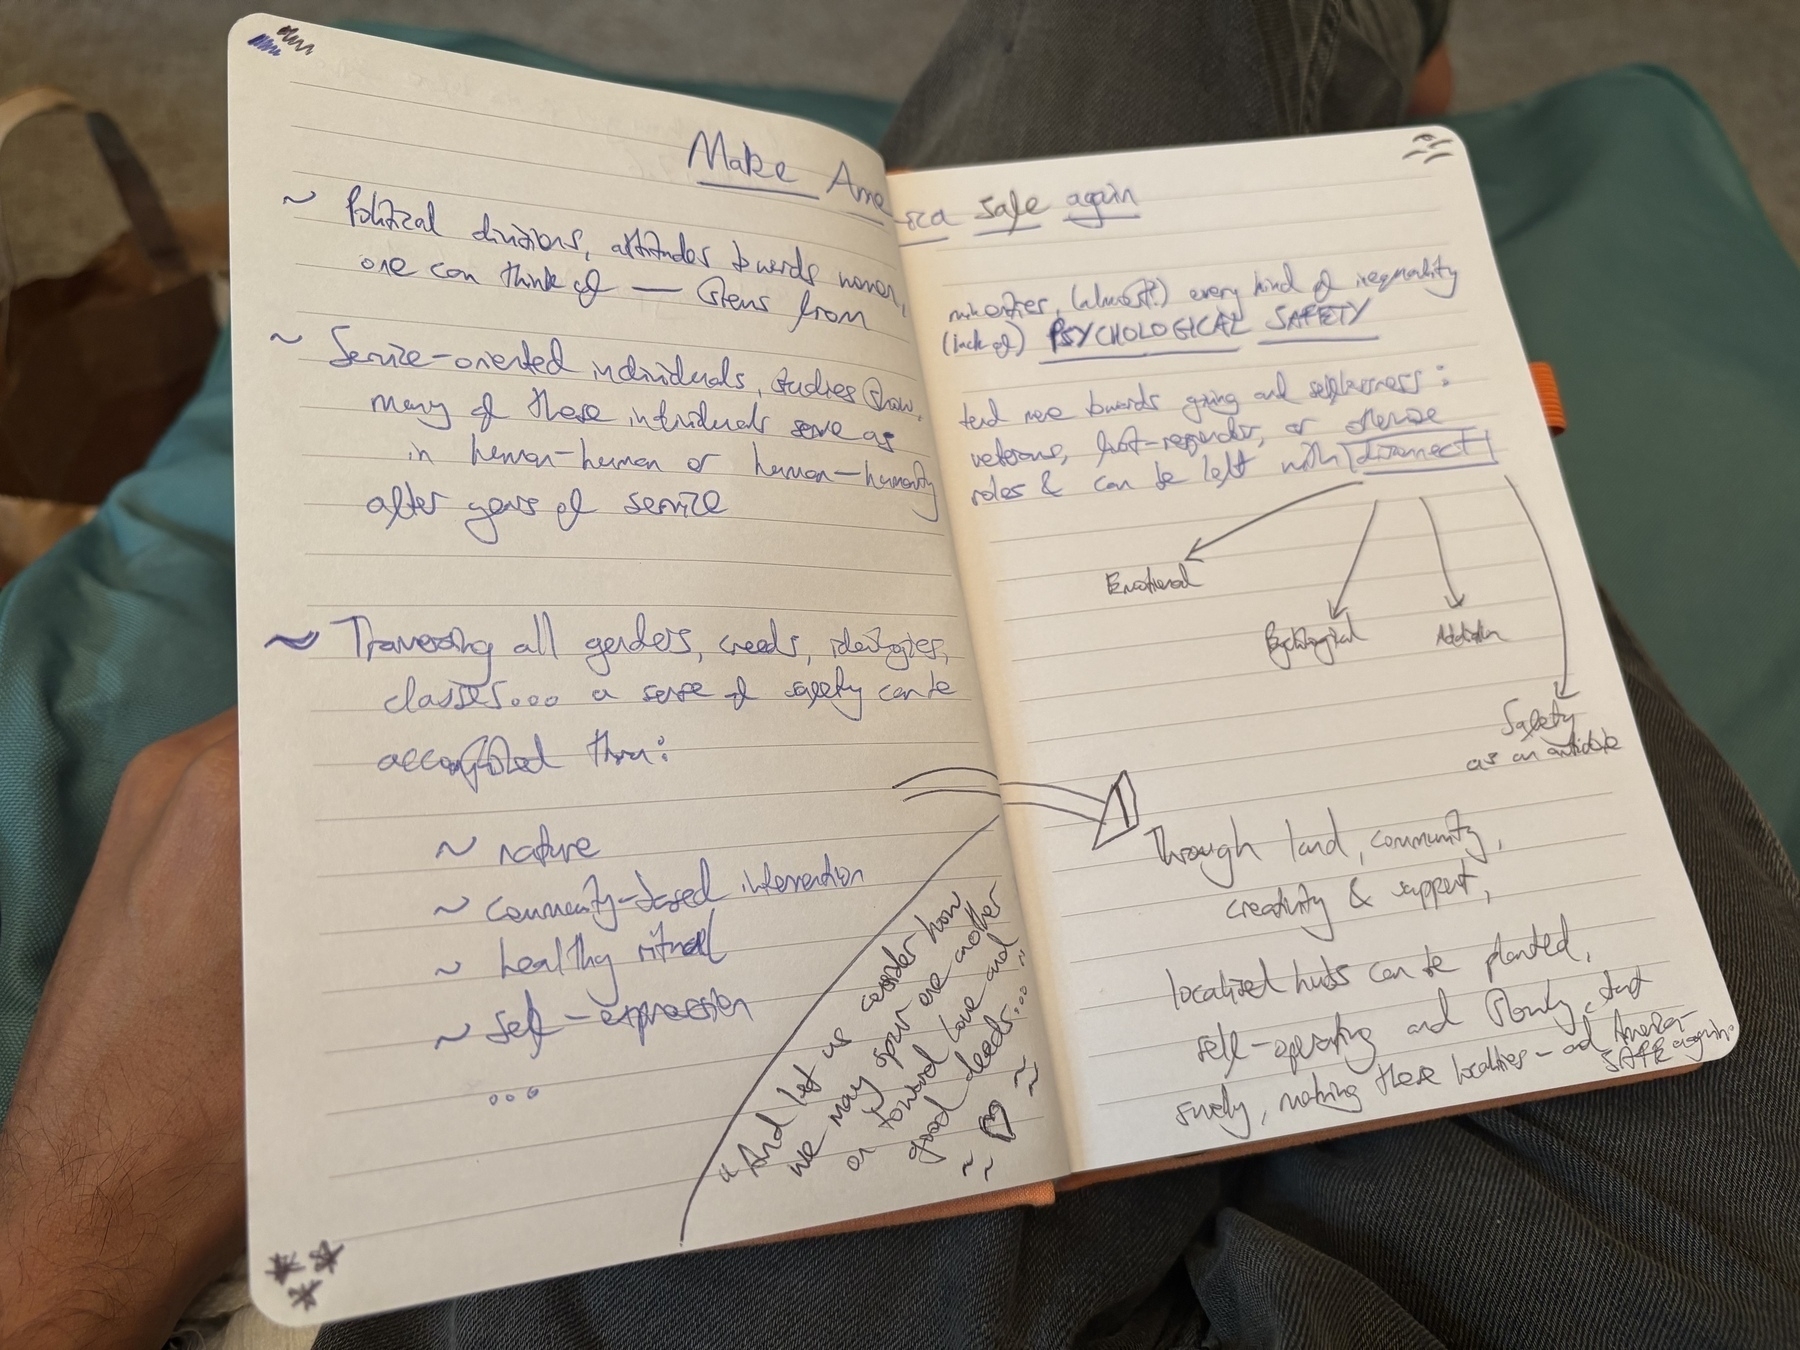 Make America safe again
~ Political divisions, attitudes towards women, minorities, (almost!) every kind of inequality
one can think of — stems from (lack of) PSYCHOLOGICAL SAFETY
~ Service-oriented individuals, studies show, tend more towards giving and selflessness:
many of these individuals serve as veterans, first-responder, or otherwise
in human-human or human-humanity roles & can be left with disconnect
after years of service
Emotional
Psychological
Addiction
Safety
as an antidote
~ Traversing all genders, creeds, ideologies,
classes... a sense of safety can be
accomplished thru:
~ nature
~ community-based intervention
~ healthy ritual
~ self-expression
...
"And let us consider how
we may spur one another
on toward love and
good deeds..."
~ ~
Through land, community,
creativity & support,
localized hubs can be planted,
self-operating and slowly, but
surely, making these localities - and America -
SAFE again.